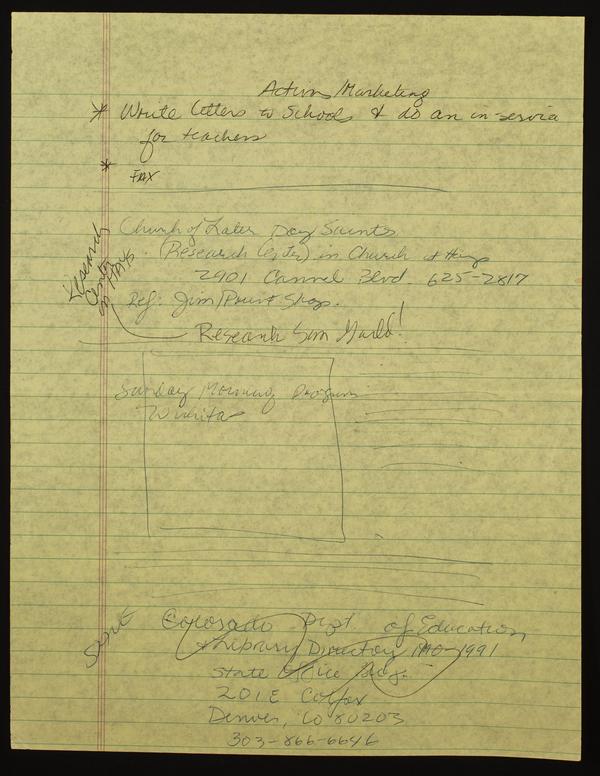 Action/Marketing
* Write letters to Schools & do an in-service
for teachers
* FAX
Church of Later Day Saints
(Research Center) in Church at Hays
2901 Cannel Blvd. 625-2817
Ref: Jim/Print Shop.
Research
Center
in HAYS
Research
Sunday Morning Program
Wichita
Sent
Colorado Dept of Education
Library Directory 1990-1991
State Office Bldg.
201 E Colfax
Denver, CO 80203
303-866-6646